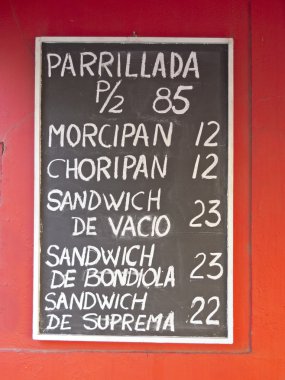 PARRILLADA
P/2 85
MORCIPAN 12
CHORIPAN 12
SANDWICH
DE VACIO 23
SANDWICH
DE BONDIOLA 23
SANDWICH
DE SUPREMA 22